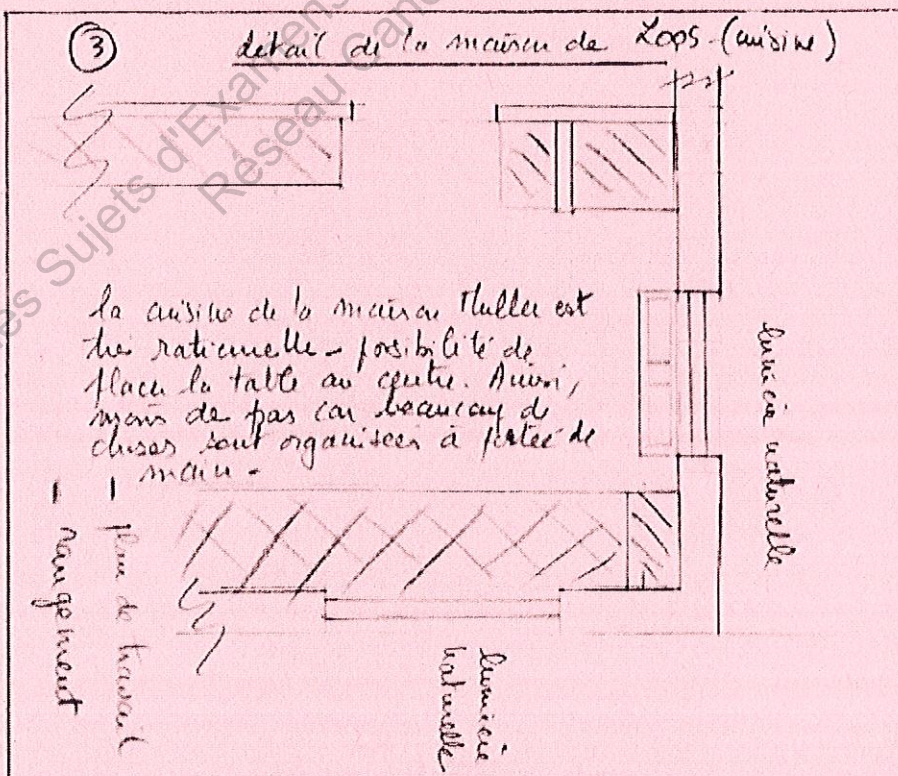 ③ détail de la maison de Loos - (cuisine)
la cuisine de la maison Muller est
très rationnelle - possibilité de
placer la table au centre. Ainsi,
moins de pas car beaucoup de
choses sont organisées à portée de
main -
lumière naturelle
lumière
naturelle
plan de travail
rangement
Sujets d'Examens
Réseau